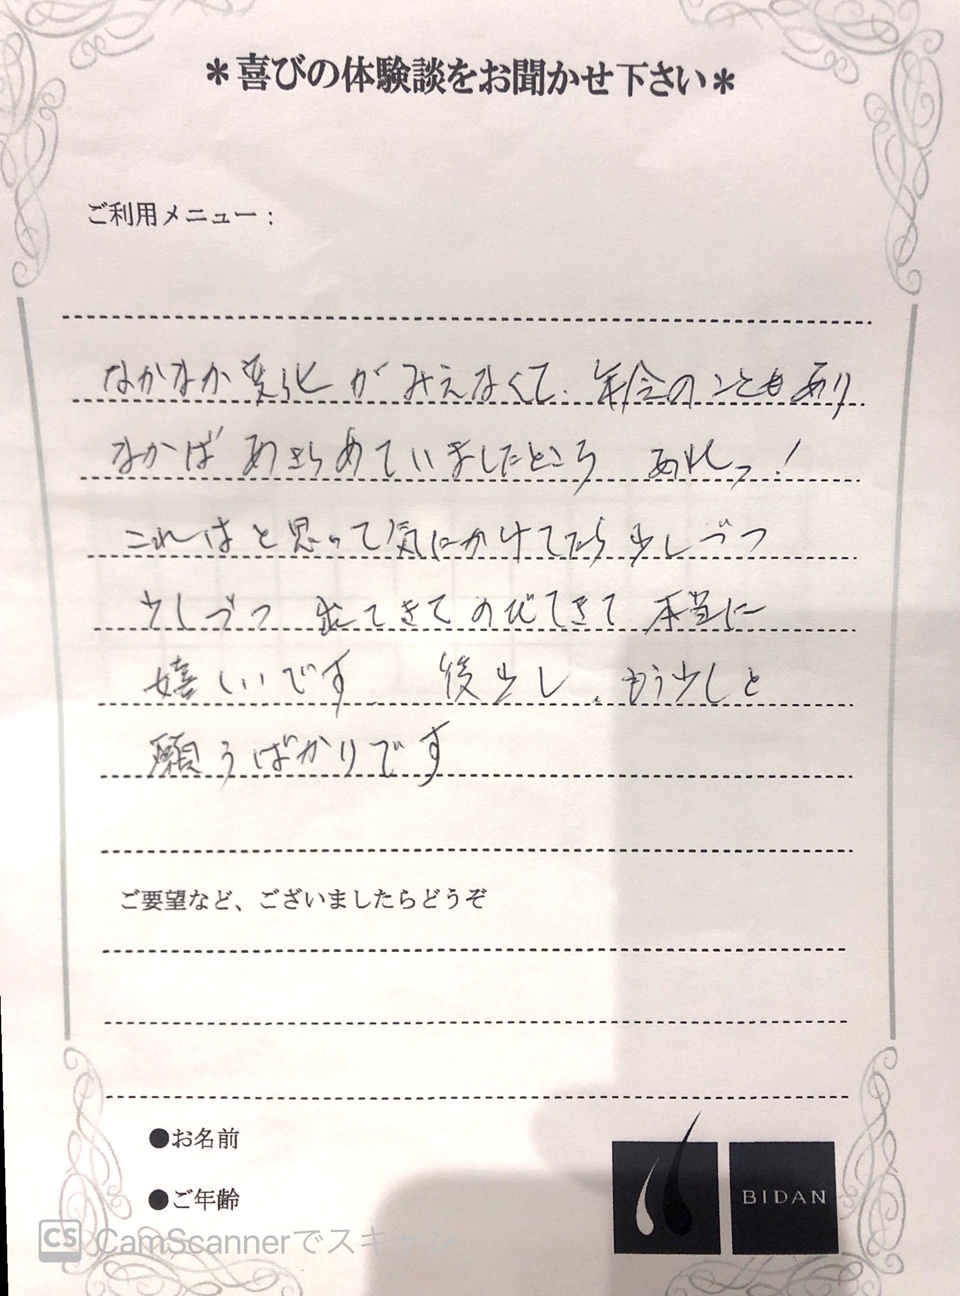 ＊喜びの体験談をお聞かせ下さい＊
ご利用メニュー：
なかなか変化がみえなくて、年令のこともあり
なかばあきらめていましたところ あれっ!
これはと思って気にかけてたら少しづつ
少しづつ 出てきてのびてきて 本当に
嬉しいです 後少し、もう少しと
願うばかりです
ご要望など、ございましたらどうぞ
●お名前
●ご年齢
BIDAN
CS CamScannerでスキャン